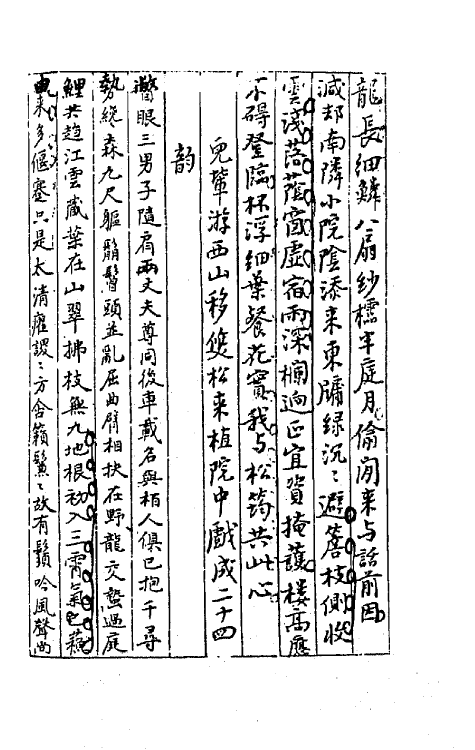 龍長細鱗八扇紗櫺半庭月偷閒来与話前因
減却南隣小院陰添来東牖緑沉ミ避簷枝側收
雲淺落蔭窗虛宿雨深欄逈正宜資掩護樓高應
不碍登臨杯浮細葉餐花實我与松筠共此心
兒輩游西山移雙松来植院中戲成二十四
韵
瞥眼三男子隨肩兩丈夫尊同後車載名與栢人俱已抱千尋
勢纔森九尺軀鬍鬢頭並亂屈曲臂相扶在野龍交蟄過庭
鯉共趋江雲藏葉在山翠拂枝無九地根初入三霄氣已蘇
来多偃蹇只是太清癯謖ミ方含籟鬖ミ故有鬚吟風聲